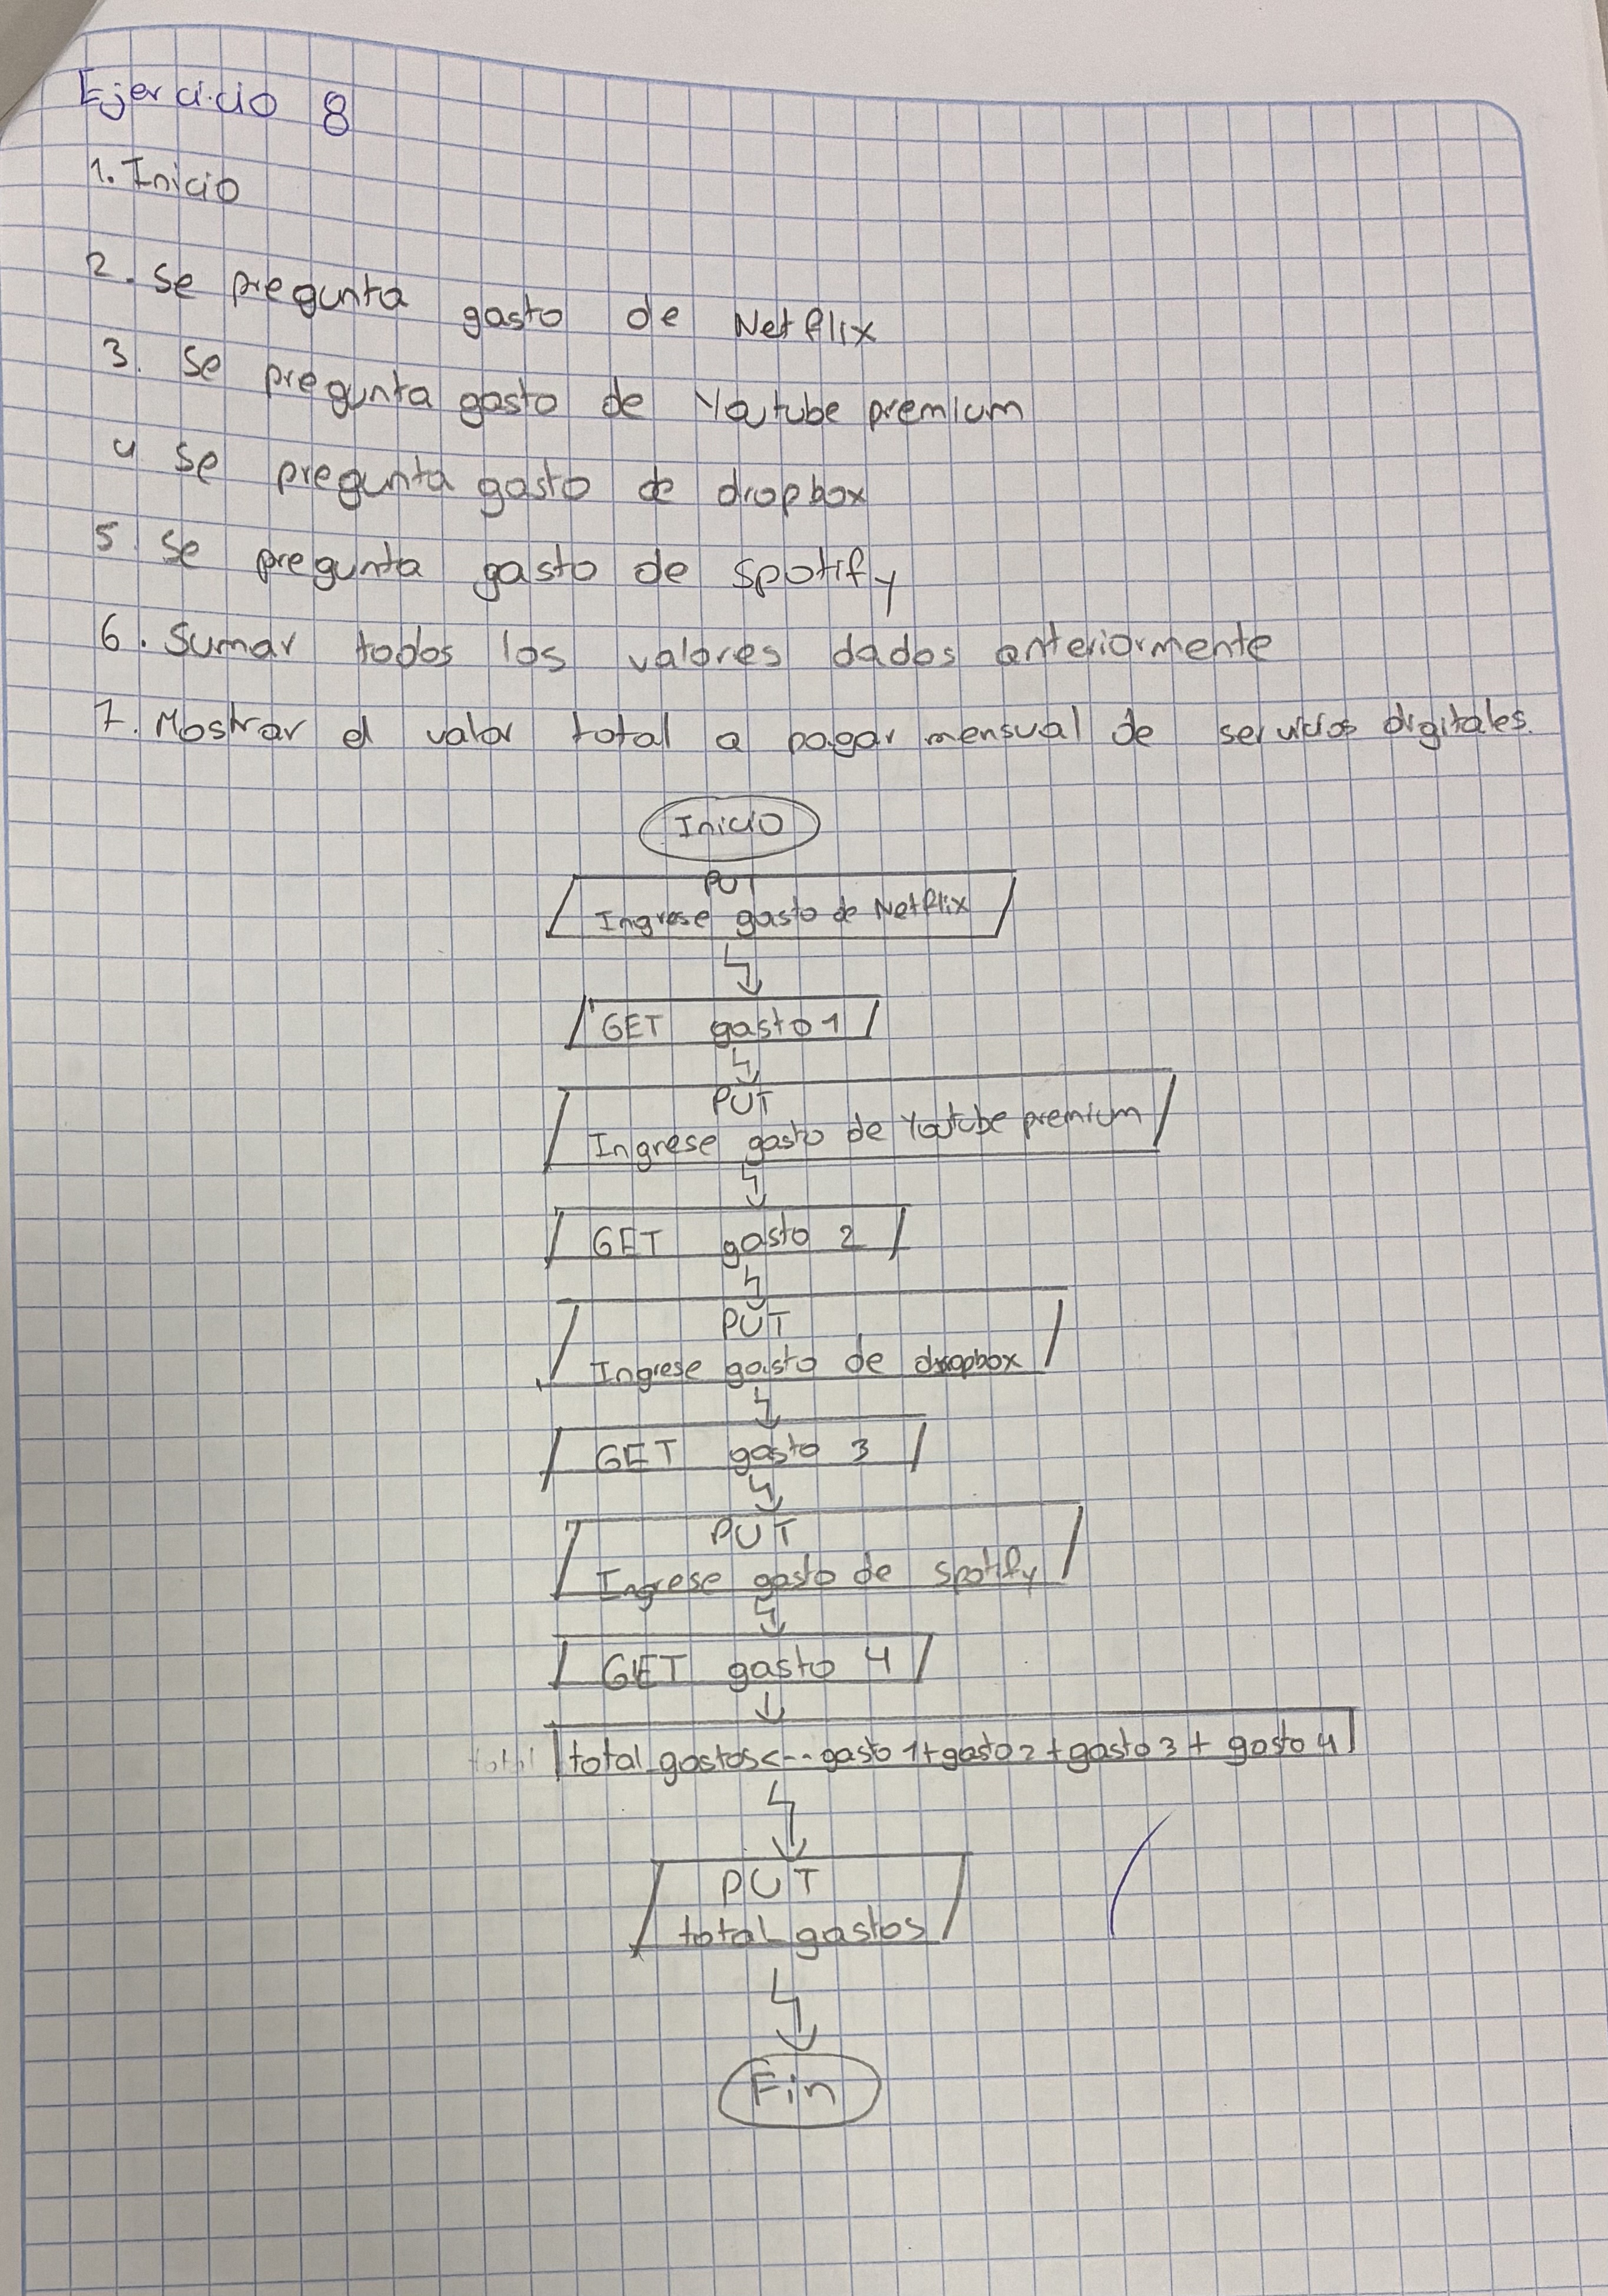 Ejercicio 8
1. Inicio
2. Se pregunta gasto de Netflix
3. Se pregunta gasto de Youtube premium
4 Se pregunta gasto de dropbox
5. Se pregunta gasto de spotify
6. Sumar todos los valores dados anteriormente
7. Mostrar el valor total a pagar mensual de servicios digitales.
Inicio
PUT
Ingrese gasto de Netflix
GET gasto 1
PUT
Ingrese gasto de Youtube premium
GET gasto 2
PUT
Ingrese gasto de dropbox
GET gasto 3
PUT
Ingrese gasto de spotify
GET gasto 4
total total_gastos <-- gasto 1+gasto 2 + gasto 3 + gasto 4
PUT
total_gastos
Fin